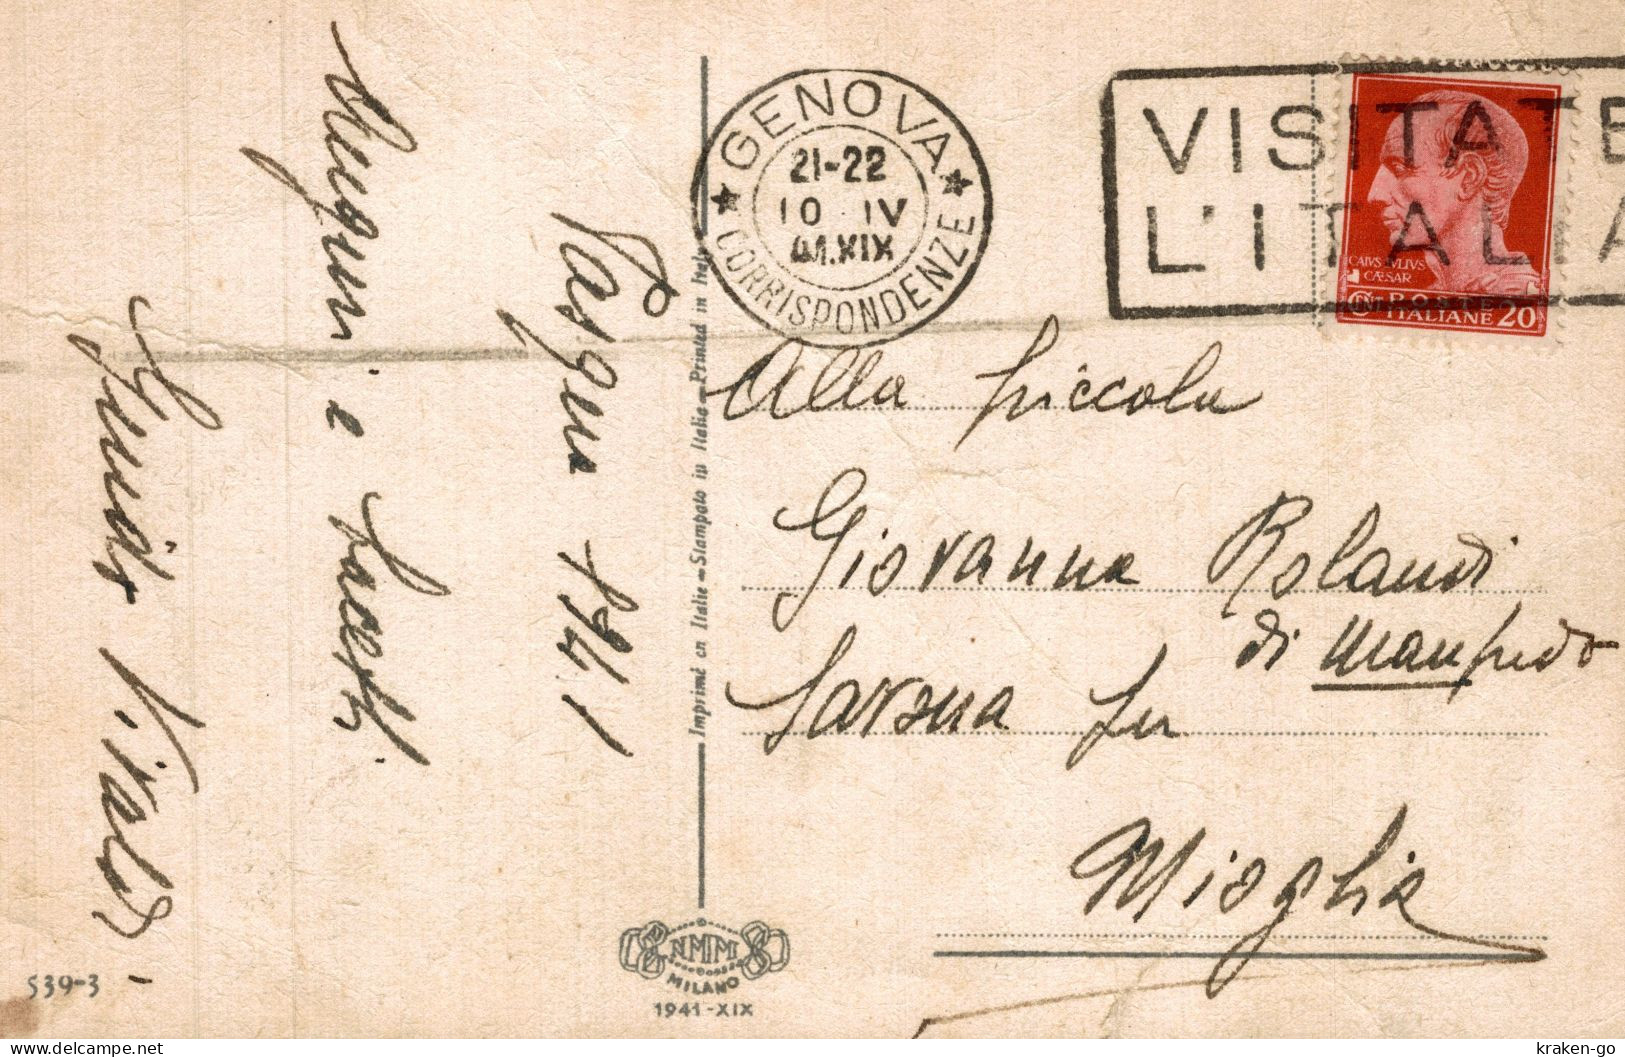 Pasqua 1941
Auguri e bacetti
GENOVA
21-22
10 IV
41.XIX
CORRISPONDENZE
VISITATE
L'ITALIA
CAIVS IVLIVS
CÆSAR
POSTE
ITALIANE 20
Alla piccola
Giovanna Rolandi
di Manfredo
Savona per
Mioglia
Imprimé en Italie - Stampato in Italia - Printed in Italy
NMM
MILANO
1941-XIX
S39-3
kraken-go